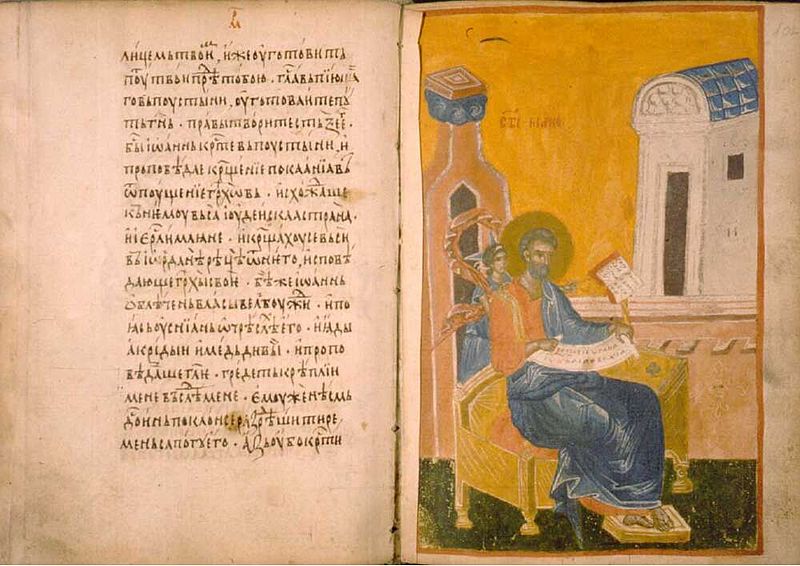 лицемь твоим, иже оуготовить
поут твои прѣд тобою . глас въпиюща
го въ поустыни, оуготоваите пꙋ
ть гн҃ь . правы творите стьзе ег
быс іѡаннь кр҃те въ поустыни, и
проповѣдае кр҃щеніе покаанїа въ
ѿпоущеніе грѣхѡвь . исхождаше
кь немоу въса іоудеискаа страна .
и іер҃лимлꙗне . и кр҃щахоу се въси
въ іѡрданѣ рѣцѣ ѿ него, исповѣ
дающе грѣхы своѥ . бѣ же іѡаннь
ѡблъчень власы велбоужи . и по
ꙗсь оусниань ѡ чрѣслѣ его . и ꙗды
акриды и медь дивы . и пропо
вѣдаше гл҃е . гредеть крѣплїи
мене въслѣд мене . емоуже нѣсмь
достоинь поклонсе разрѣшити ре
мень сапогу его . азь оубо кр҃сти
ст҃ы марко